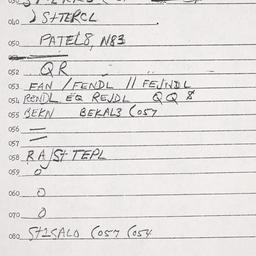 040 S+TERCL
050 PATEL8, N83
052 QR
053 FAN /FENDL // FEJNDL
054 RENDL EQ REJDL QQ 8
055 BEKN BEKAL3 (057
056 =
057 =
058 RA/S+ TEPL
059 0
060 0
070 0
080 S+1SALO (057 (054